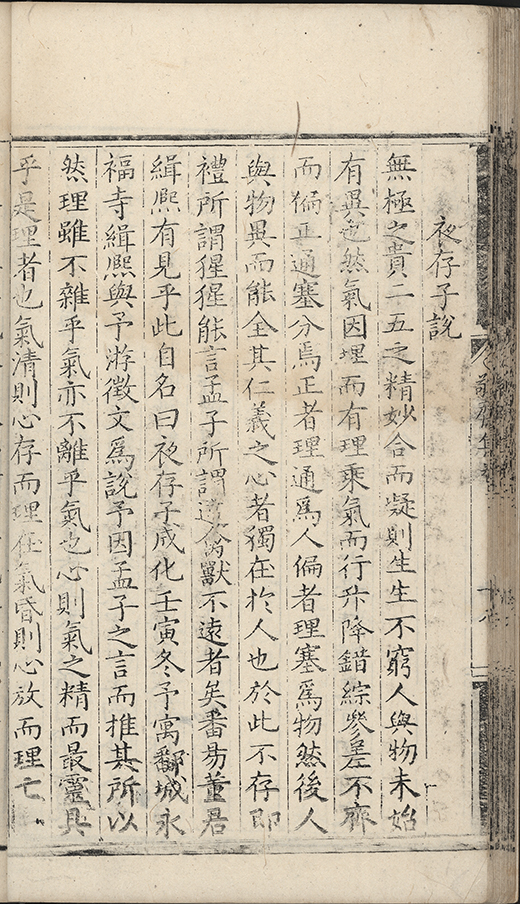 夜存子說
無極之真二五之精妙合而凝則生生不窮人與物未始
有異也然氣因理而有理乘氣而行升降錯綜參差不齊
而偏正通塞分焉正者理通爲人偏者理塞爲物然後人
與物異而能全其仁義之心者獨在於人也於此不存即
禮所謂猩猩能言孟子所謂違禽獸不遠者矣番昜董君
緝熈有見乎此自名曰夜存子成化壬寅冬予寓鄱城永
福寺緝熈與予游徵文爲說予因孟子之言而推其所以
然理雖不雜乎氣亦不離乎氣也心則氣之精而最靈具
乎是理者也氣清則心存而理在氣昏則心放而理亡